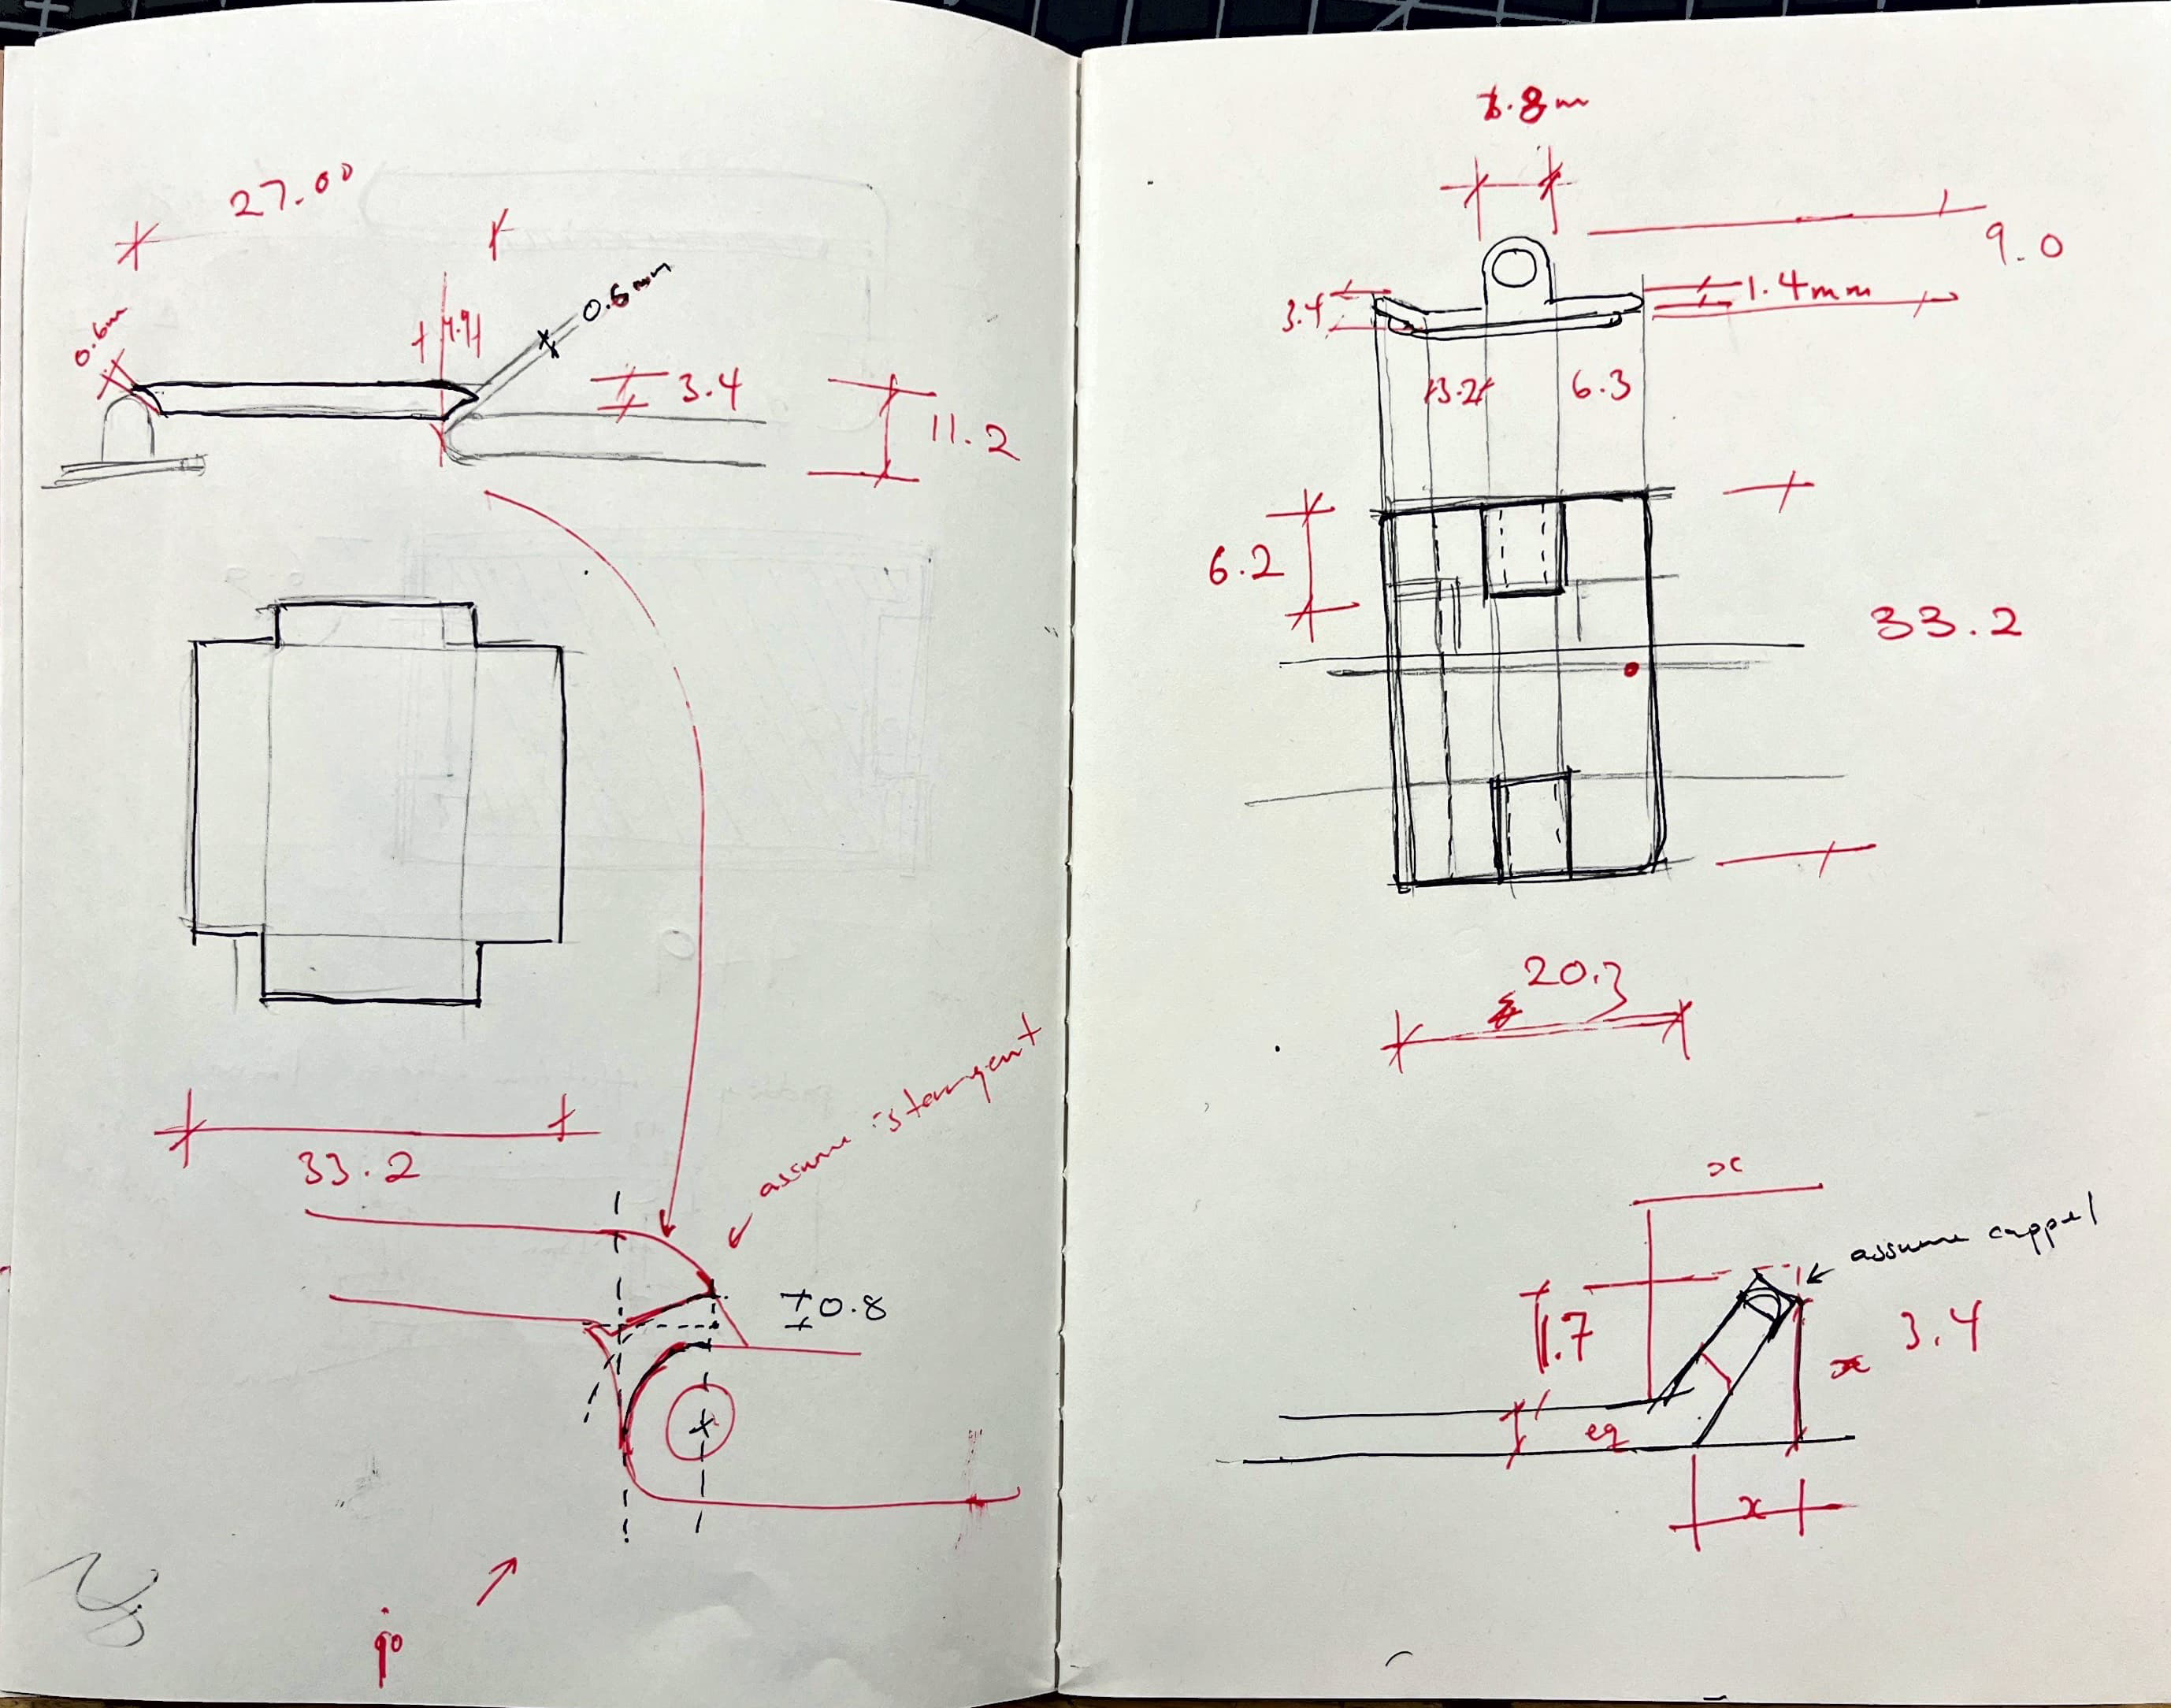 27.00
0.6m
0.6mm
3.4
11.2
33.2
assume is tangent
0.8
9.0
3.4
1.4mm
6.3
6.2
33.2
20.3
x
assume capped
1.7
x 3.4
eq
x